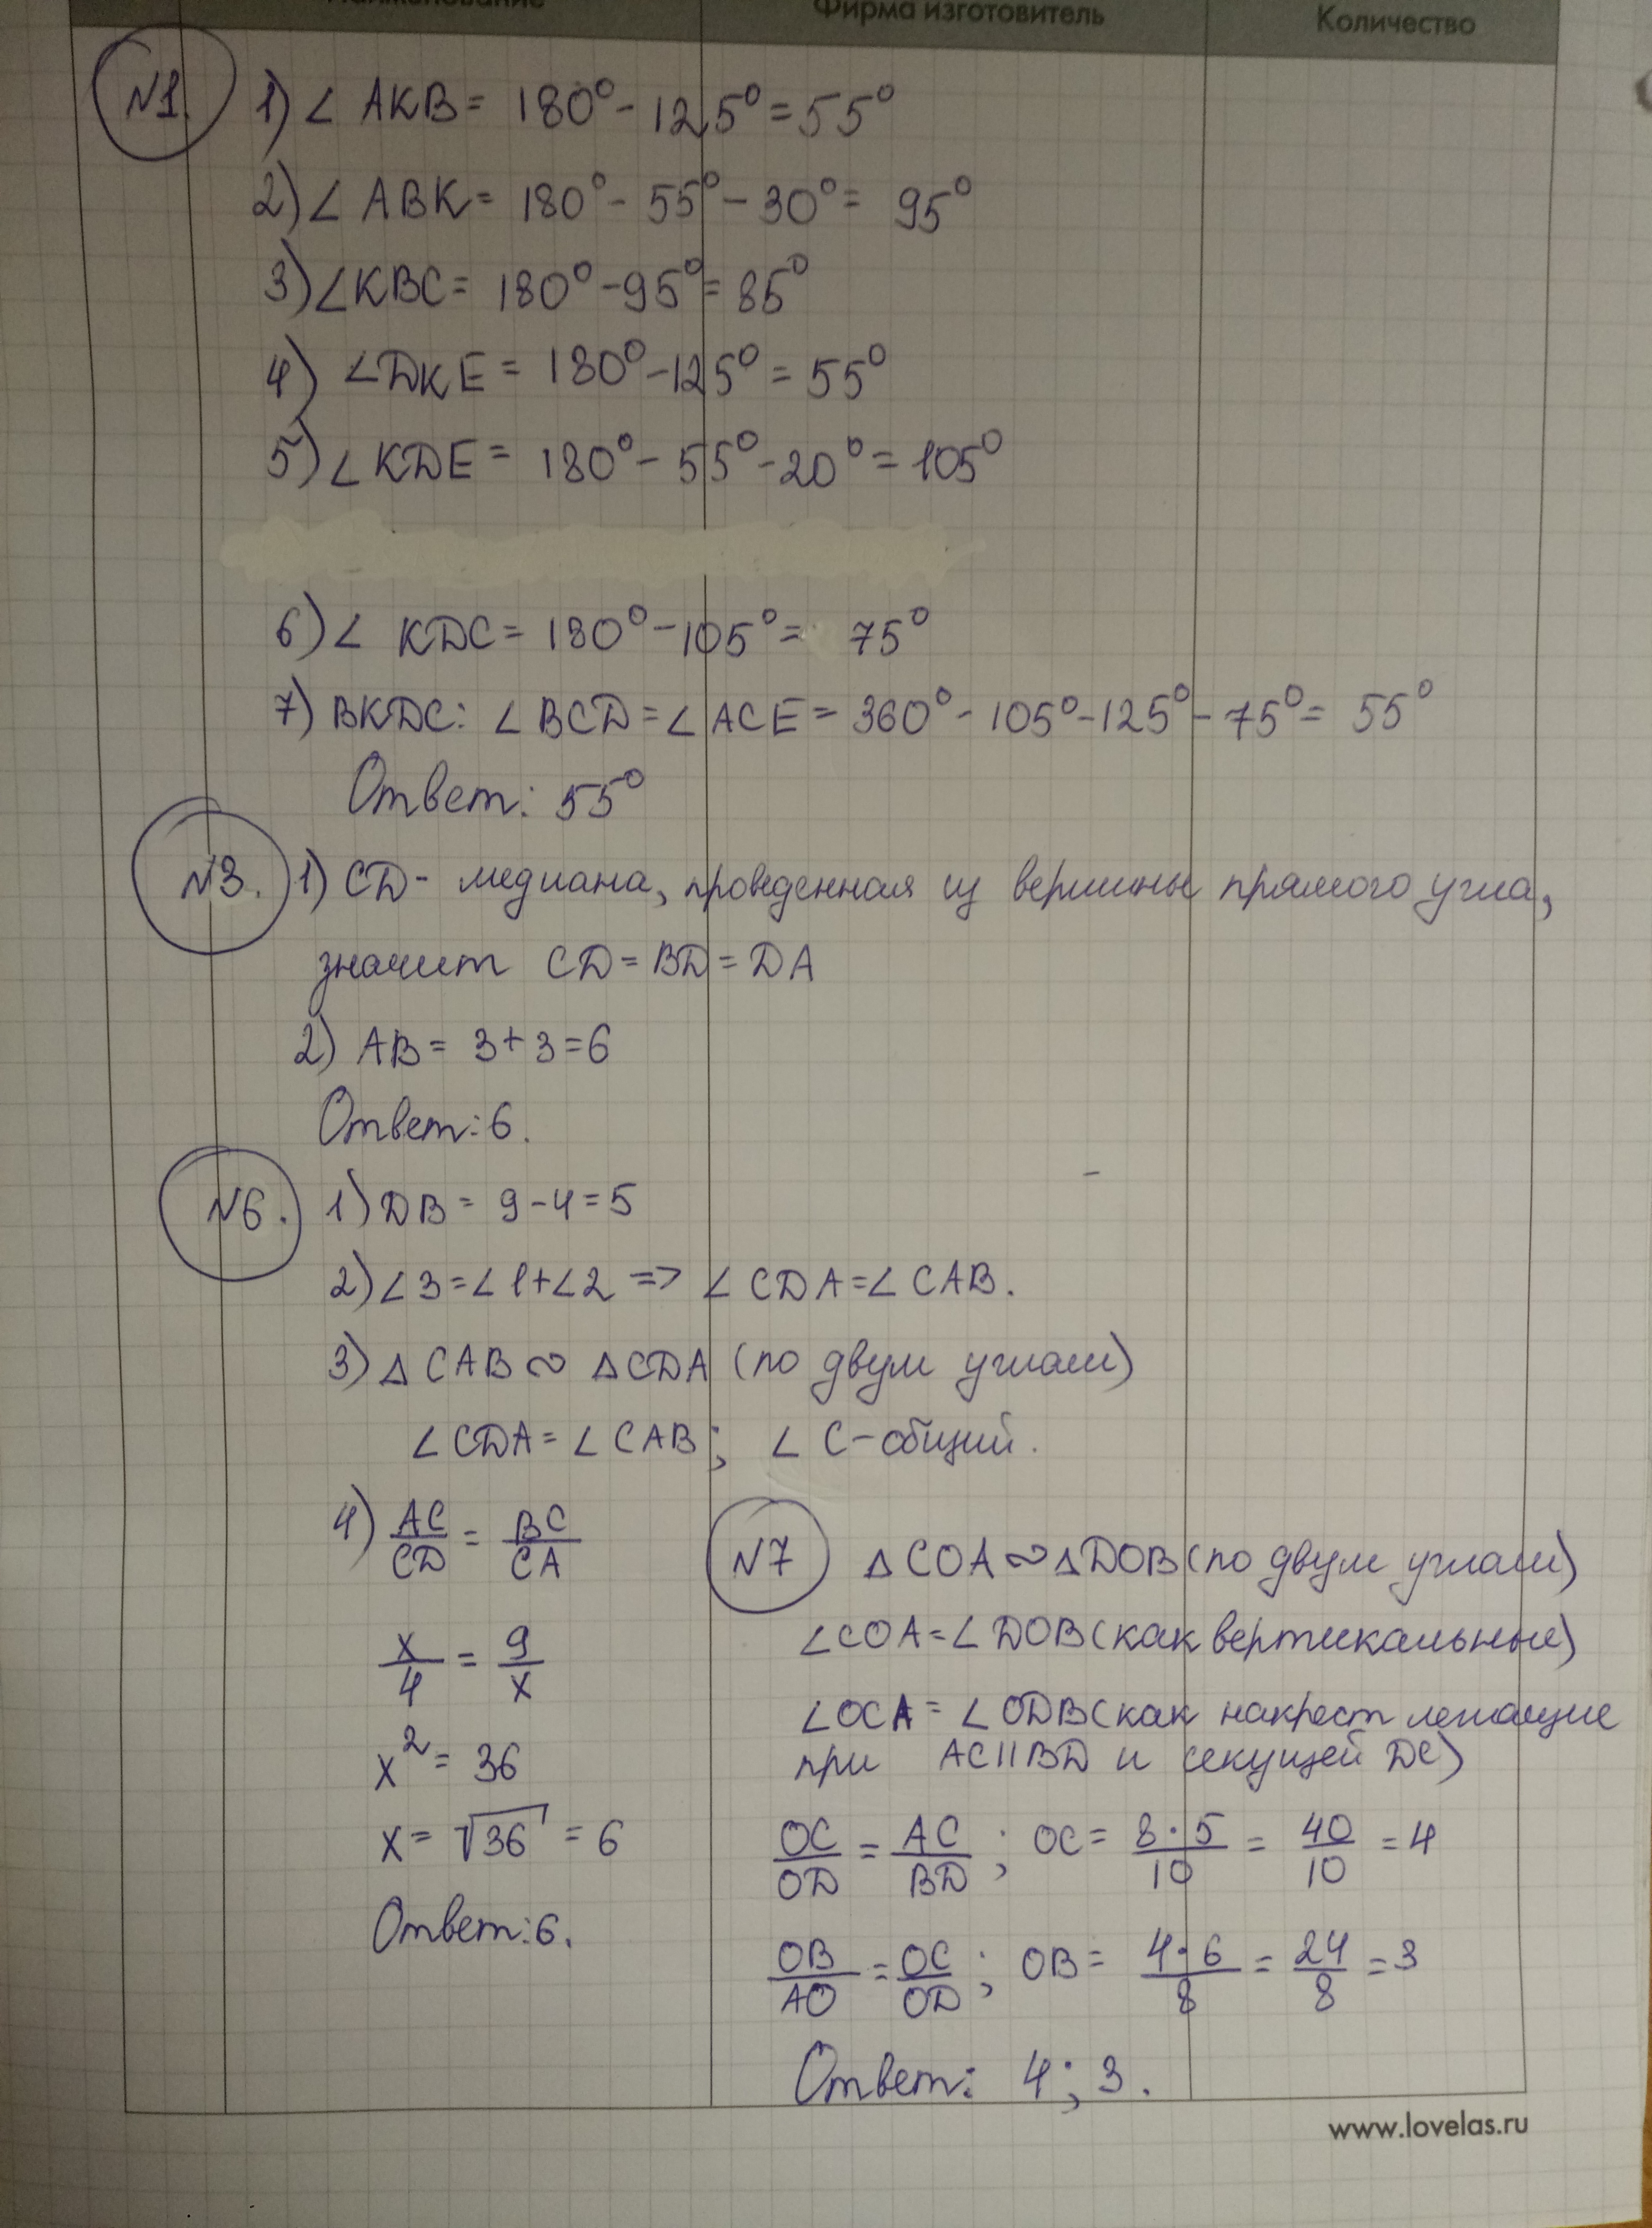 Наименование Фирма изготовитель Количество
№1. 1) ∠ AKB = 180° - 125° = 55°
2) ∠ ABK = 180° - 55° - 30° = 95°
3) ∠KBC = 180° - 95° = 85°
4) ∠DKE = 180° - 125° = 55°
5) ∠ KDE = 180° - 55° - 20° = 105°
6) ∠ KDC = 180° - 105° = 75°
7) BKDC: ∠ BCD = ∠ ACE = 360° - 105° - 125° - 75° = 55°
Ответ: 55°
№3. 1) CD - медиана, проведенная из вершины прямого угла,
значит CD = BD = DA
2) AB = 3 + 3 = 6
Ответ: 6.
№6. 1) DB = 9 - 4 = 5
2) ∠3 = ∠1 + ∠2 => ∠ CDA = ∠ CAB.
3) △ CAB ∾ △ CDA (по двум углам)
∠ CDA = ∠ CAB; ∠ C - общий.
4) AC/CD = BC/CA
x/4 = 9/x
x² = 36
x = √36 = 6
Ответ: 6.
№7 △ COA ∾ △ DOB (по двум углам)
∠COA = ∠ DOB (как вертикальные)
∠OCA = ∠ ODB (как накрест лежащие
при AC || BD и секущей DC)
OC/OD = AC/BD ; OC = 8·5/10 = 40/10 = 4
OB/AO = OC/OD ; OB = 4·6/8 = 24/8 = 3
Ответ: 4; 3.
www.lovelas.ru